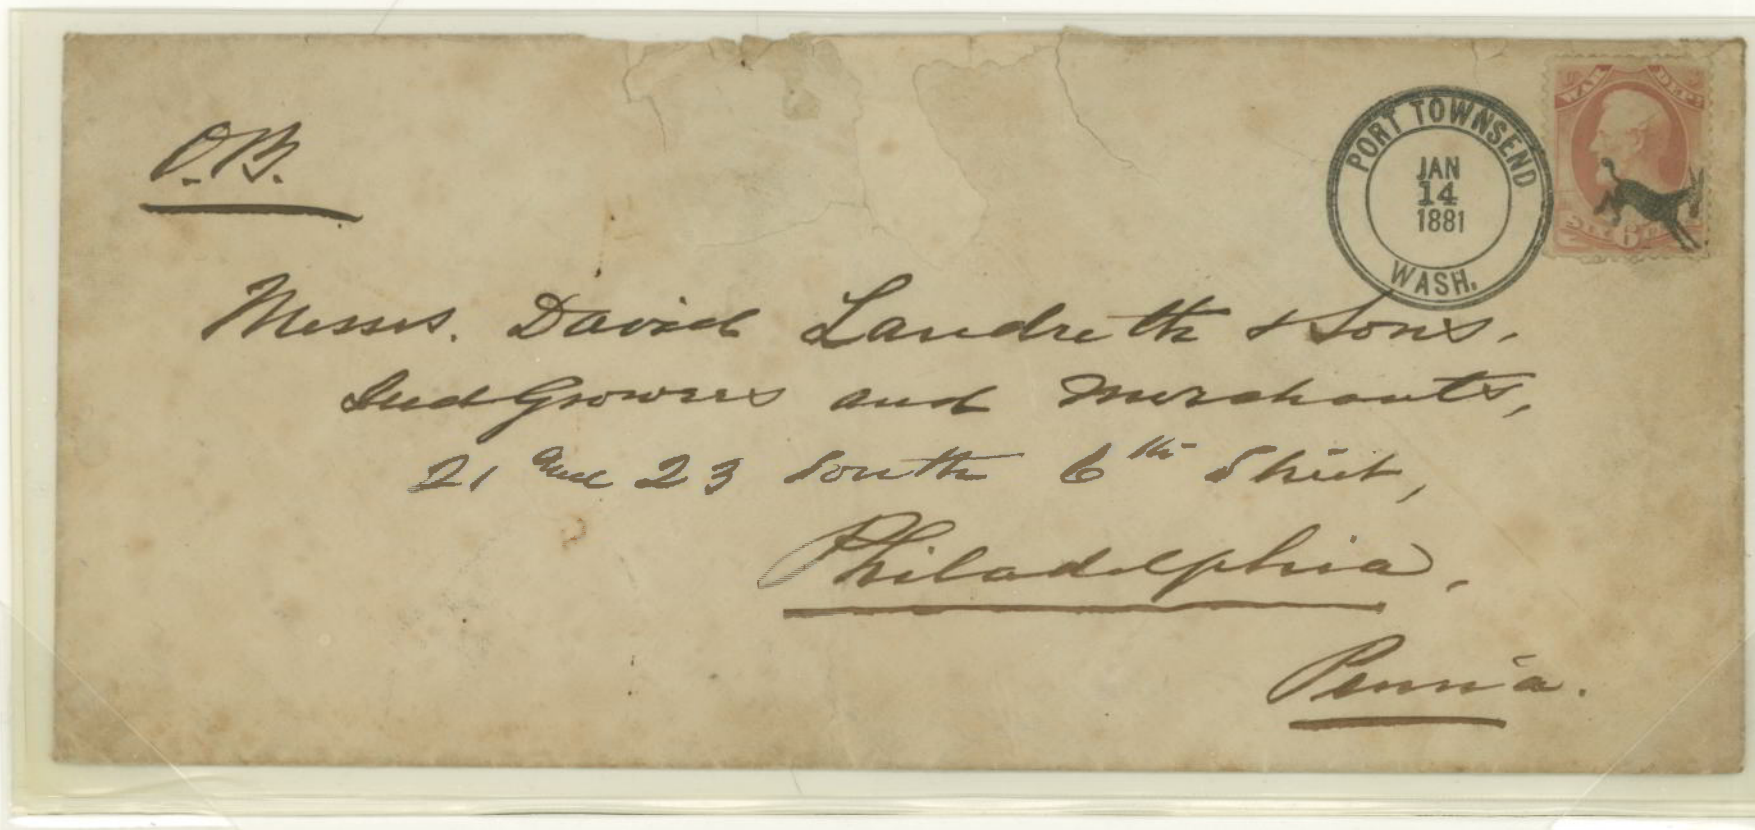 O.B.
PORT TOWNSEND
JAN
14
1881
WASH.
WAR DEPT
SIX 6
Messrs. David Landreth & Sons,
Seed Growers and Merchants,
21 and 23 South 6th Street,
Philadelphia,
Penn'a.